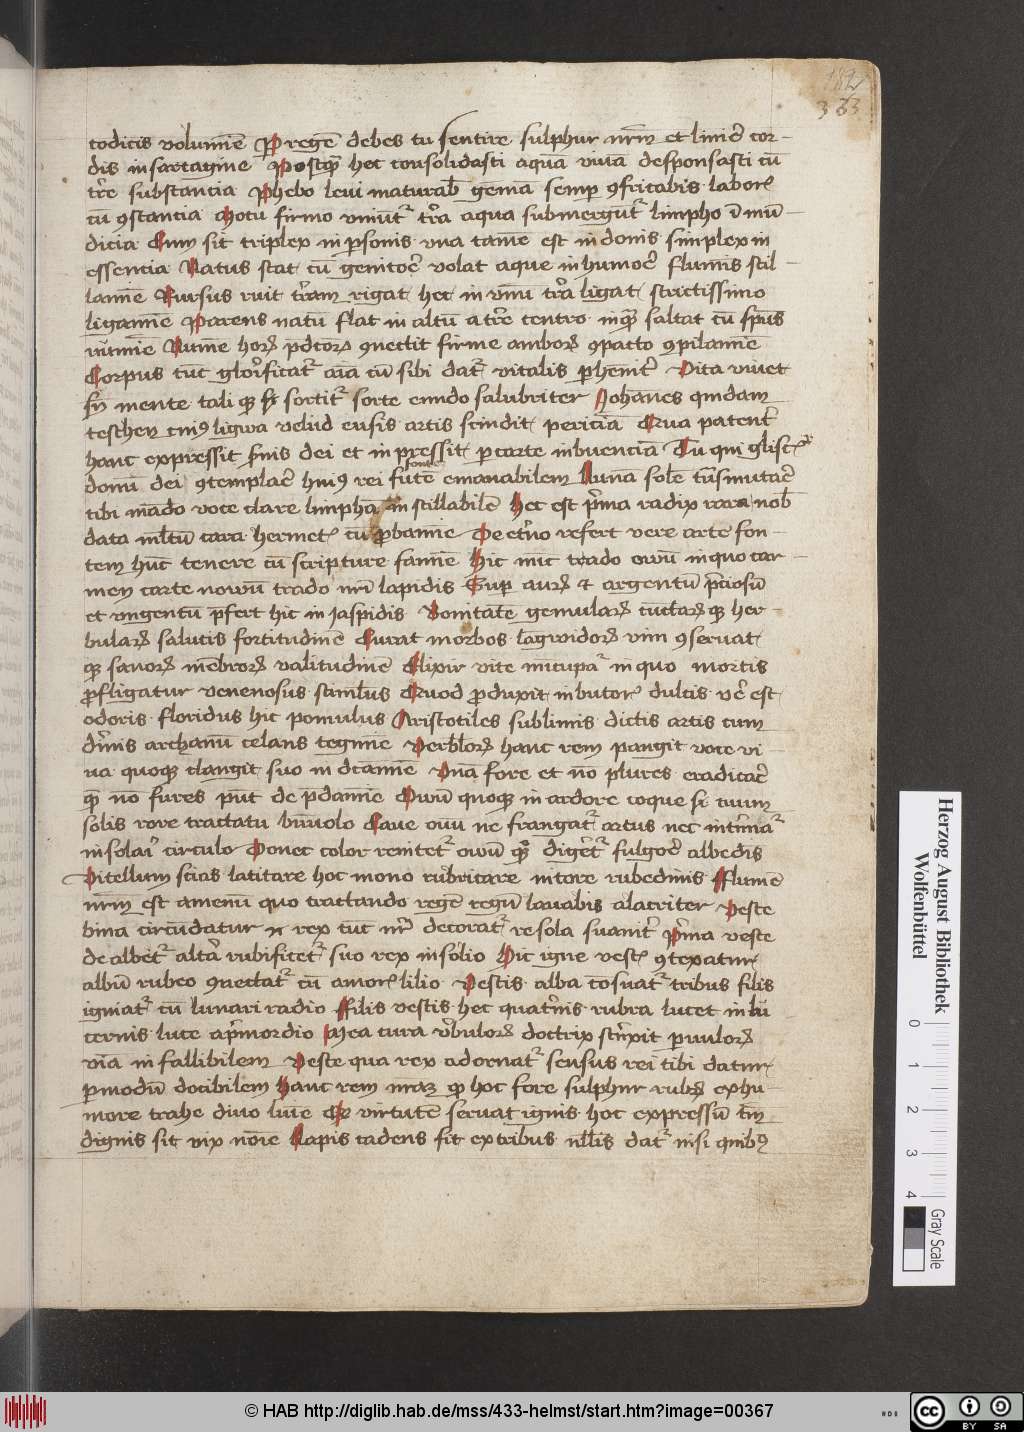 182
333
codicis volumīe Per regē debes tu sentire sulphur nr̄m et linier̄ cor-
dis in sartagine Postqʒ hec consolidasti aquā vivā desponsasti cū
tr̄e substancia Phebo levi maturab̄ gemā semp ꝯfricabis labor̄
cū ꝯstancia Motu firmo vniūt᷑ tr̄a aqua submergūt᷑ limpho ī mū-
dicia Cum sit triplex in psonis vna tamē est in donis simplex in
essencia Natus stat cū genitor̄ volat aque in humor̄ flumīs stil-
lamīe Rursus ruit tr̄am rigat hec in vnū tr̄a ligat strictissimo
ligamīe Parens natū flat in altū a tr̄e centro inqʒ saltat cū sp̄us
Corpus tūc glor̄ificat᷑ aīa cū sibi dat᷑ vitalis phenit᷑ Vita vivet
sn̄ mente tali qʒ sortit᷑ sorte eundo salubriter Johānes quidam
teschen cuiꝯ ligwa velud ensis artis scindit periciā Qua patent᷑
hanc expressit finis dei et inpressit p carte inbuenciā Tu qui glisc᷑
fonte
domū dei ꝯtemplar̄ huiꝯ rei emanabilem Lunā solē tn̄smutar̄
tibi mādo voce clare limphā in stillabilē Hec est p̄ma radix rara nob̄
data ml̄tū cara hermet᷑ cū ꝓbamīe De et᷑no refert vere arte fon-
tem hūc tenere cū scripture famīe Hic nūc trado ovū in quo car-
men carte novū trado nr̄i lapidis Sup aurꝝ et argentū p̄ciosū
et vngentū p̄fert hic in jaspidis Bonitatē gemularꝝ cūctarꝝ qʒ her-
bularꝝ salutis fortitudinē Curat morbos lagwidorꝝ vim ꝯservat
qʒ sanorꝝ mēbrorꝝ valitudinē Elixir vite nūcupa᷑ in quo mortis
ꝓfligatur venenosus Quod ꝓduxit in butor᷑ dulcis ver̄ est
odoris floridus hic pomulus Aristotiles sublimis dictis artis cum
dn̄nis archanū celans tegmīe Verb̄lorꝝ hanc rem pangit voce vi-
va quoqʒ clangit suo in dc̄amīe Vnā fore et nō plures eradicar̄
qʒ nō fures pn̄t de p̄damīe Ovū quoqʒ in ardore coque si tuum
solis rore tractatu bn̄ivolo Cave ovū ne frangat᷑ artus nec intīma᷑
in solar̄i circulo Donec color renitet᷑ ovū qʒ diger̄t᷑ fulgor̄ albedis
Vitellum scias latitare hoc mono rubricare nitore rubedinis Flumē
nr̄m est amenū quo tractando regē regū lavabis alacriter Veste
bina circūdatur et rex tūc nr̄ decorat᷑ re sola suavit᷑ P̄ma veste
de albet᷑ alt̄a rubificet᷑ suo rex in solio Hic igne vest᷑ ꝯtexatur
albū rubeo ꝯnectat᷑ cū amor᷑ lilio Vestis alba cōsuat᷑ tribus filis
igniat᷑ cū lunari radio Filis vestis hec quat᷑nis rubra lucet in lū
cernis luce a p̄mordio Mea cura v̄bulorꝝ doctrix scīpit pvulorꝝ
viā in fallibilem Veste qua rex adornat᷑ sensus rei tibi datur
p modū docibilem Hanc rem qʒ hoc fore sulphur rubꝝ ex hu-
more trahe divo Et virtutē servat ignis hoc expressū tm̄
dignis sit vix noīe Lapis cadens fit ex tribus nll̄is dat᷑ nisi quibꝯ
Herzog August Bibliothek
Wolfenbüttel
0 1 2 3 4
Gray Scale
© HAB http://diglib.hab.de/mss/433-helmst/start.htm?image=00367
HAB
cc BY SA